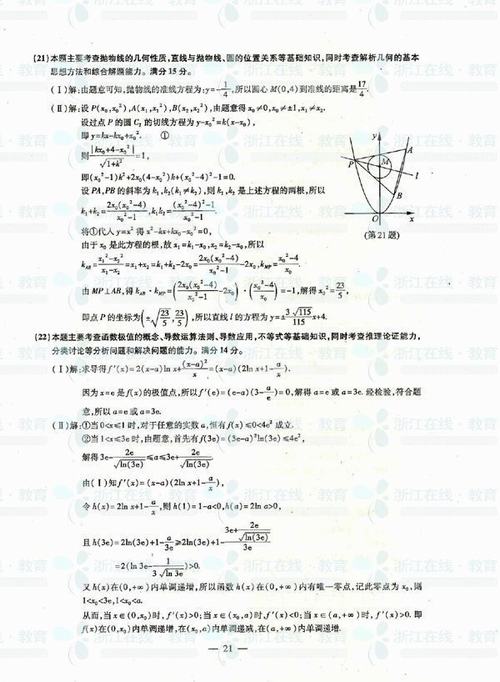 (21)本题主要考查抛物线的几何性质,直线与抛物线、圆的位置关系等基础知识,同时考查解析几何的基本
思想方法和综合解题能力。满分15分。
(Ⅰ)解:由题意可知,抛物线的准线方程为:y=-1/4,所以圆心M(0,4)到准线的距离是17/4.
(Ⅱ)解:设P(x₀,x₀²),A(x₁,x₁²),B(x₂,x₂²),由题意得x₀≠0,x₀≠±1,x₁≠x₂.
设过点P的圆C₂的切线方程为y-x₀²=k(x-x₀),
即y=kx-kx₀+x₀². ①
则|kx₀+4-x₀²|/√(1+k²)=1,
即(x₀²-1)k²+2x₀(4-x₀²)k+(x₀²-4)²-1=0.
设PA,PB的斜率为k₁,k₂(k₁≠k₂),则k₁,k₂是上述方程的两根,所以
k₁+k₂=2x₀(x₀²-4)/(x₀²-1),k₁k₂=((x₀²-4)²-1)/(x₀²-1).
将①代入y=x²得x²-kx+kx₀-x₀²=0,
由于x₀是此方程的根,故x₁=k₁-x₀,x₂=k₂-x₀,所以
k_AB=(x₁²-x₂²)/(x₁-x₂)=x₁+x₂=k₁+k₂-2x₀=2x₀(x₀²-4)/(x₀²-1)-2x₀,k_MP=(x₀²-4)/x₀.
由MP⊥AB,得k_AB·k_MP=(2x₀(x₀²-4)/(x₀²-1)-2x₀)·(x₀²-4)/x₀=-1,解得x₀²=23/5,
即点P的坐标为(±√(23/5),23/5),所以直线l的方程为y=±(3√115/115)x+4.
y
A
P
M
B
O
x
(第21题)
(22)本题主要考查函数极值的概念、导数运算法则、导数应用,不等式等基础知识,同时考查推理论证能力,
分类讨论等分析问题和解决问题的能力。满分14分。
(Ⅰ)解:求导得f′(x)=2(x-a)ln x+(x-a)²/x=(x-a)(2ln x+1-a/x).
因为x=e是f(x)的极值点,所以f′(e)=(e-a)(3-a/e)=0,解得a=e或a=3e.经检验,符合题
意,所以a=e或a=3e.
(Ⅱ)解:①当0<x≤1时,对于任意的实数a,恒有f(x)≤0<4e²成立.
②当1<x≤3e时,由题意,首先有f(3e)=(3e-a)²ln(3e)≤4e²,
解得3e-2e/√ln(3e)≤a≤3e+2e/√ln(3e).
由(Ⅰ)知f′(x)=(x-a)(2ln x+1-a/x),
令h(x)=2ln x+1-a/x,则h(1)=1-a<0,h(a)=2ln a>0,
且h(3e)=2ln(3e)+1-a/3e≥2ln(3e)+1-(3e+2e/√ln(3e))/3e
=2(ln 3e-1/(3√ln 3e))>0.
又h(x)在(0,+∞)内单调递增,所以函数h(x)在(0,+∞)内有唯一零点,记此零点为x₀,则
1<x₀<3e,1<x₀<a.
从而,当x∈(0,x₀)时,f′(x)>0;当x∈(x₀,a)时,f′(x)<0;当x∈(a,+∞)时,f′(x)>0.即
f(x)在(0,x₀)内单调递增,在(x₀,a)内单调递减,在(a,+∞)内单调递增.
— 21 —
浙江在线·教育